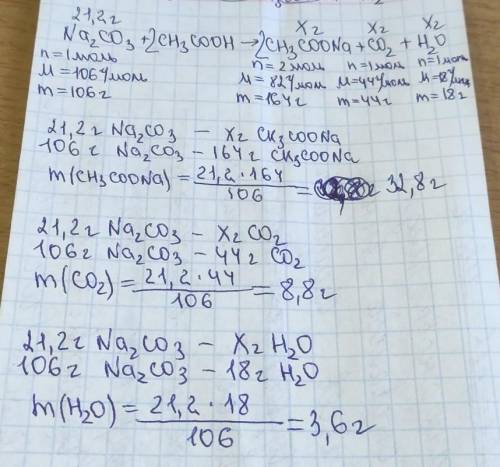 21,2г хг хг хг
Na₂CO₃ + 2CH₃COOH → 2CH₃COONa + CO₂ + H₂O
n = 1моль n = 2моль n = 1моль n = 1моль
M = 106г/моль M = 82г/моль M = 44г/моль M = 18г/моль
m = 106г m = 164г m = 44г m = 18г
21,2г Na₂CO₃ — хг CH₃COONa
106г Na₂CO₃ — 164г CH₃COONa
m(CH₃COONa) = 21,2·164 / 106 = 32,8г
21,2г Na₂CO₃ — хг CO₂
106г Na₂CO₃ — 44г CO₂
m(CO₂) = 21,2·44 / 106 = 8,8г
21,2г Na₂CO₃ — хг H₂O
106г Na₂CO₃ — 18г H₂O
m(H₂O) = 21,2·18 / 106 = 3,6г